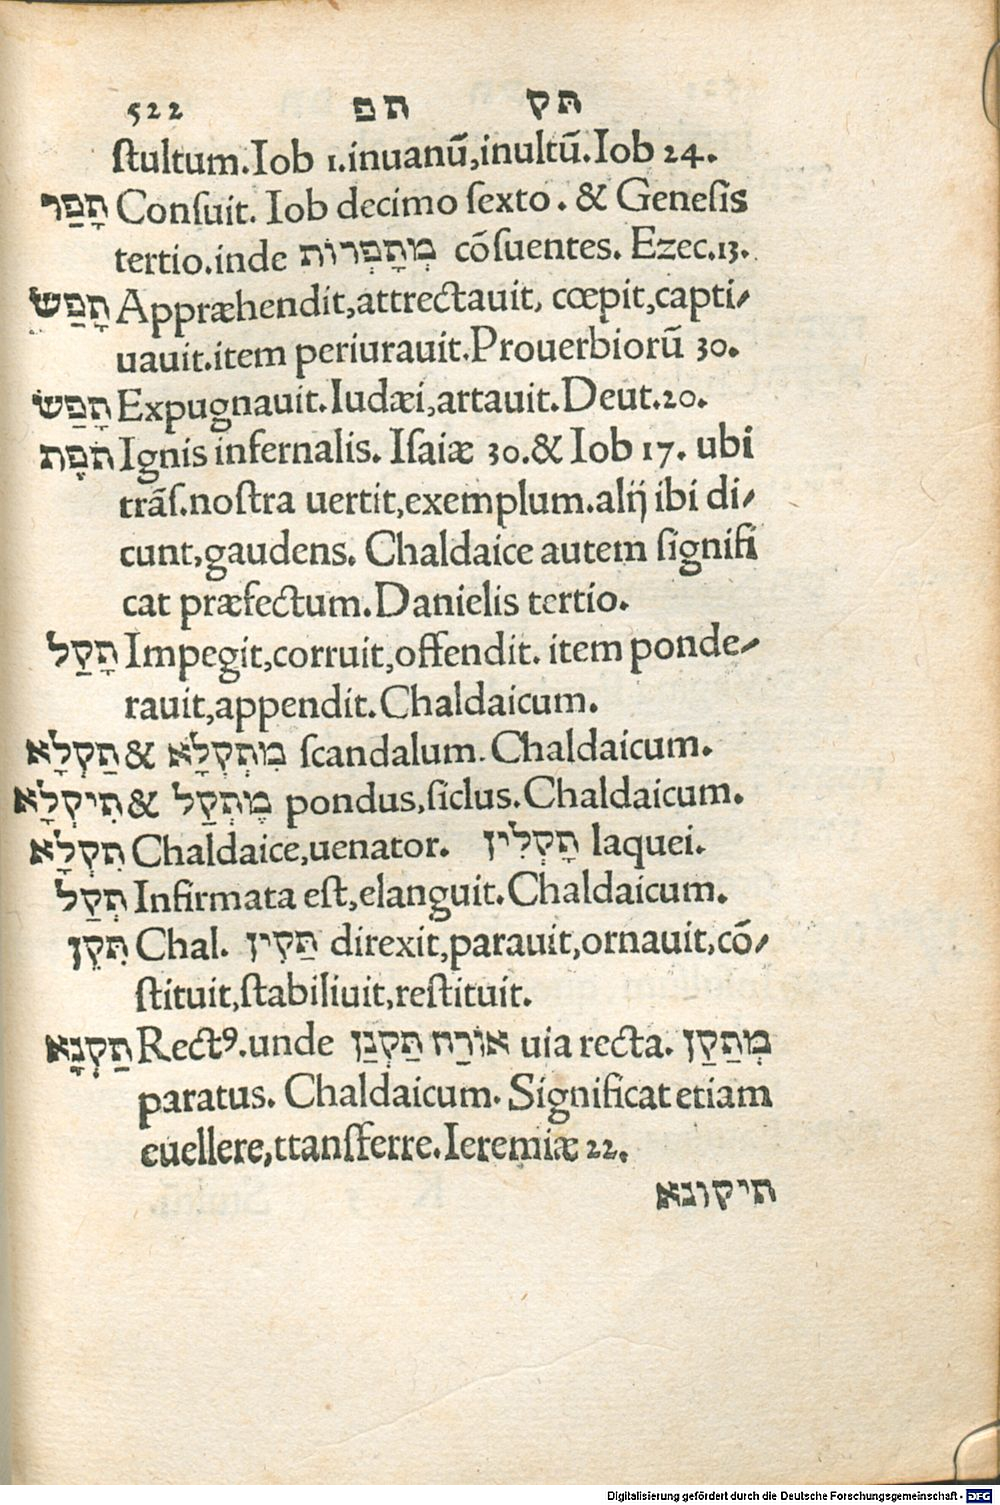 522 תפ תק
stultum.Iob 1.inuanū,inultū.Iob 24.
תָפַר Consuit. Iob decimo sexto. & Genesis
tertio.inde מְתָפְרוֹת cōsuentes. Ezec.13.
תָפַשׂ Appræhendit,attrectauit, cœpit,capti⸗
uauit.item periurauit.Prouerbiorū 30.
תָפַשׂ Expugnauit.Iudæi,artauit.Deut.20.
תֹפֶת Ignis infernalis. Isaiæ 30.& Iob 17. ubi
trās.nostra uertit,exemplum.alij ibi di⸗
cunt,gaudens. Chaldaice autem signifi
cat præfectum.Danielis tertio.
תָקַל Impegit,corruit,offendit. item ponde⸗
rauit,appendit.Chaldaicum.
תַקְלָא & מִתְקְלָא scandalum.Chaldaicum.
תִיקְלָא & מֶתְקַל pondus,siclus.Chaldaicum.
תִקְלָא Chaldaice,uenator. תָקְלִין laquei.
תְקַל Infirmata est,elanguit.Chaldaicum.
תִּקֵן Chal. תַּקִין direxit,parauit,ornauit,cō⸗
stituit,stabiliuit,restituit.
תַקְנָא Rectꝰ.unde אוֹרַח תַּקְנַן uia recta. מְתַקַן
paratus. Chaldaicum. Significat etiam
euellere,ttansferre.Ieremiæ 22.
תיקונא
Digitalisierung gefördert durch die Deutsche Forschungsgemeinschaft - DFG